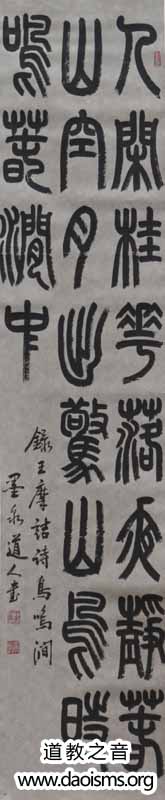 人閑桂華落夜靜春
山空月出驚山鳥時
鳴春澗中
錄王摩詰詩鳥鳴澗
墨泉道人書
道教之音
www.daoisms.org